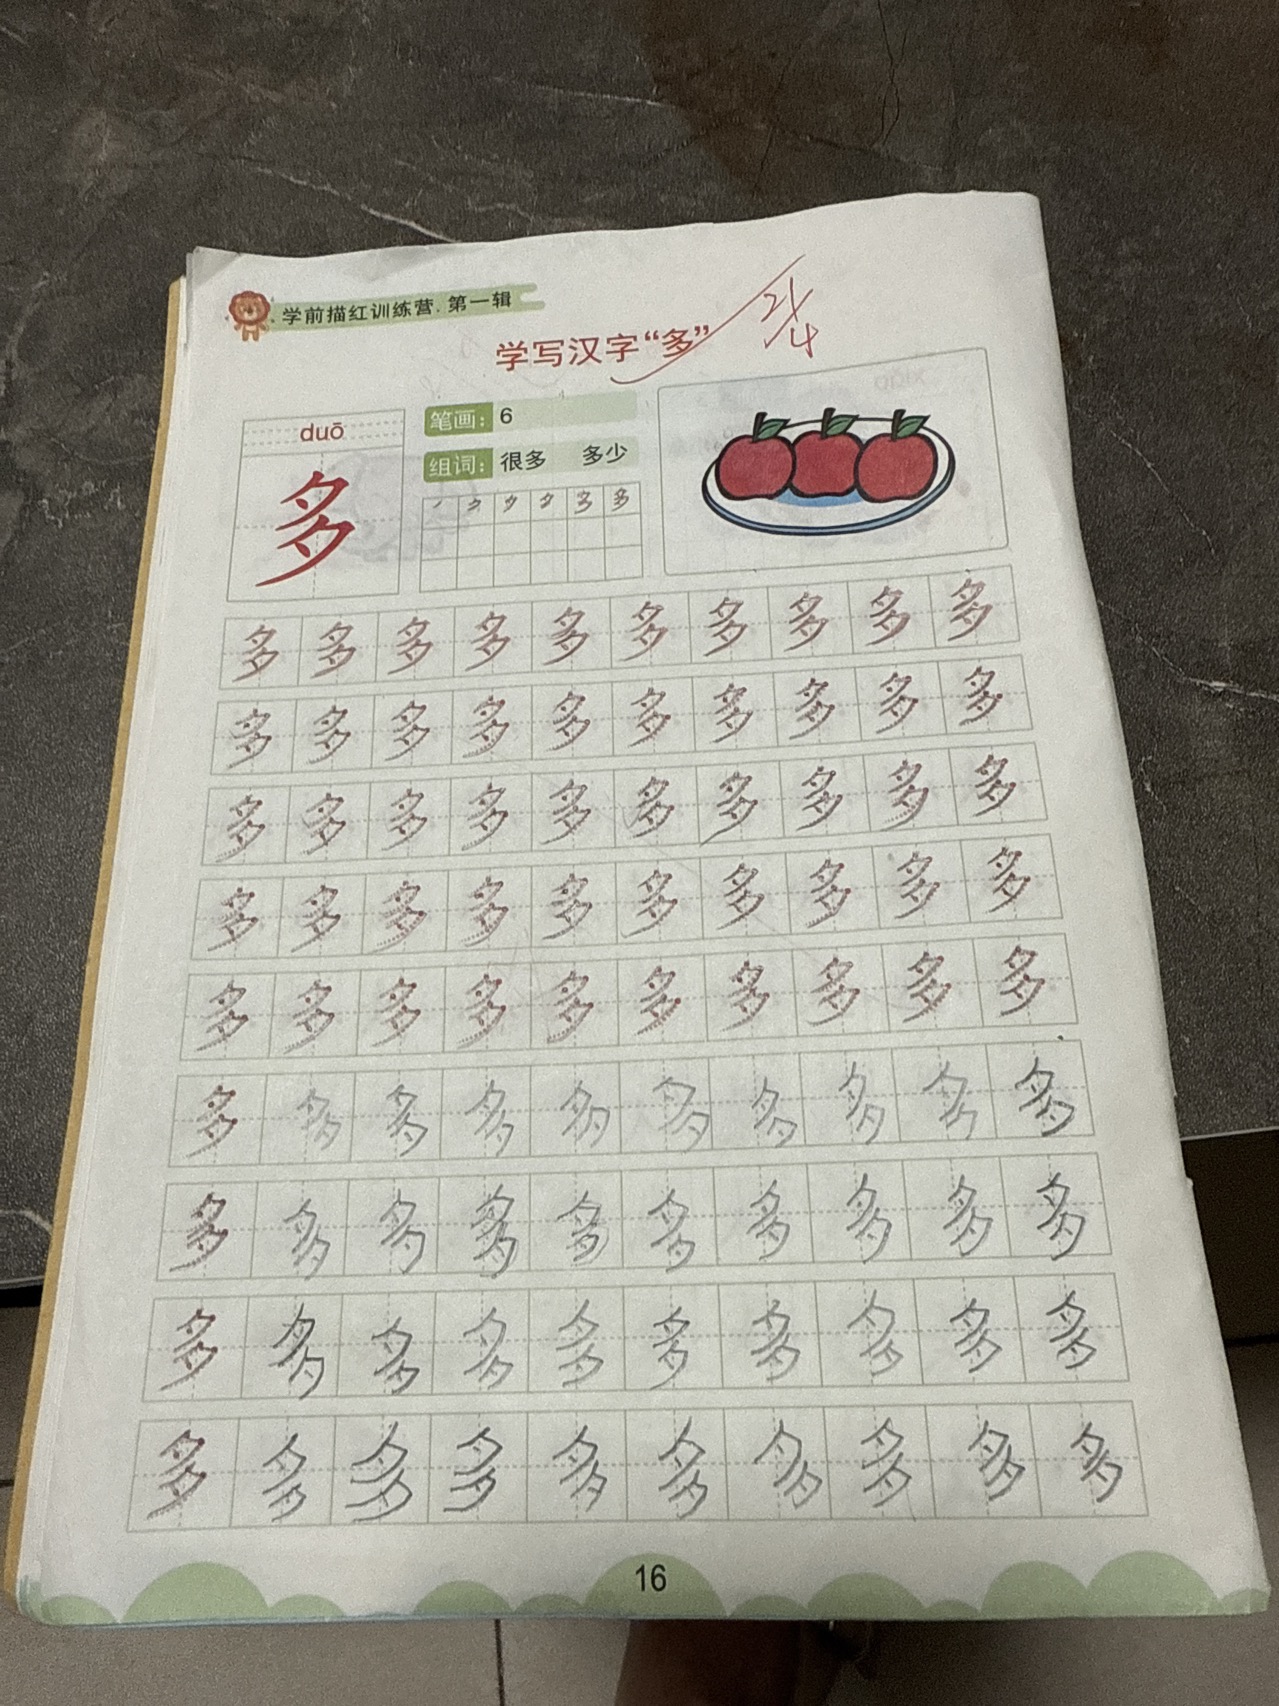 学前描红训练营.第一辑
学写汉字“多”
24/4
duō
多
笔画：6
组词：很多 多少
多多多多多多多多多多
多多多多多多多多多多
多多多多多多多多多多
多多多多多多多多多多
多多多多多多多多多多
多多多多多多多多多多
多多多多多多多多多多
多多多多多多多多多多
多多多多多多多多多多
16